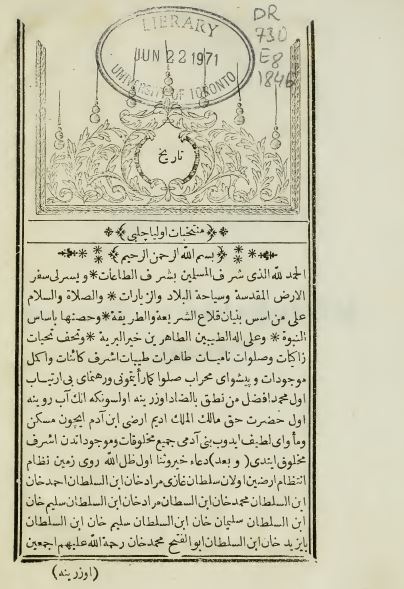 LIBRARY
JUN 22 1971
UNIVERSITY OF TORONTO
DR
730
E8
1846
تاريخ
منتخبات اوليا چلبى
بسم الله الرحمن الرحيم
الحمد لله الذى شرف المسلمين بشرف الطاعات * ويسر لى سفر
الارض المقدسة وسياحة البلاد والزيارات * والصلاة والسلام
على من اسس بنيان قلاع الشريعة والطريقة * وحصنها باساس
النبوة * وعلى اله الطيبين الطاهرين خير البرية * وتحف تحيات
زاكيات وصلوات ناميات طاهرات طيبات اشرف كائنات واكمل
موجودات و پيشواى محراب صلوا كما رأيتمونى ورهنماى بى ارتياب
اول محمد افضل من نطق بالضاد اوزرينه اولسونكه انك آب رو ينه
اول حضرت حق مالك الملك اديم ارضى ابن آدم ايچون مسكن
ومأواى لطيف ايدوب بنى آدمى جميع مخلوقات وموجوداتدن اشرف
مخلوق ايتدى ( و بعد ) دعاء خير وثنا اول ظل الله روى زمين نظام
انتظام ارضين اولان سلطان غازى مراد خان ابن السلطان احمد خان
ابن السلطان محمد خان ابن السلطان مراد خان ابن السلطان سليم خان
ابن السلطان سليمان خان ابن السلطان سليم خان ابن السلطان
بايزيد خان ابن السلطان ابوالفتح محمد خان رحمة الله عليهم اجمعين
(اوزرينه)